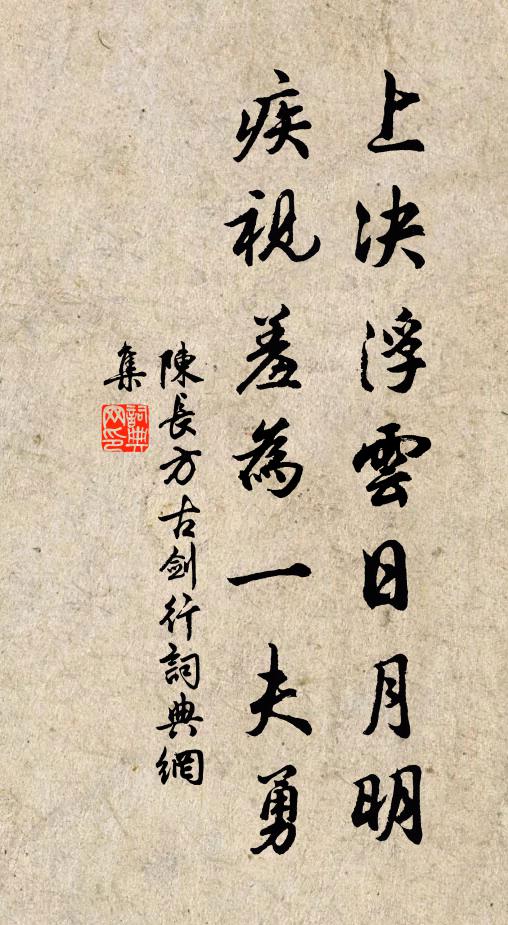 上決浮雲日月明
疾視羞為一夫勇
陳長方古劍行詞典網
集
詞典
网印